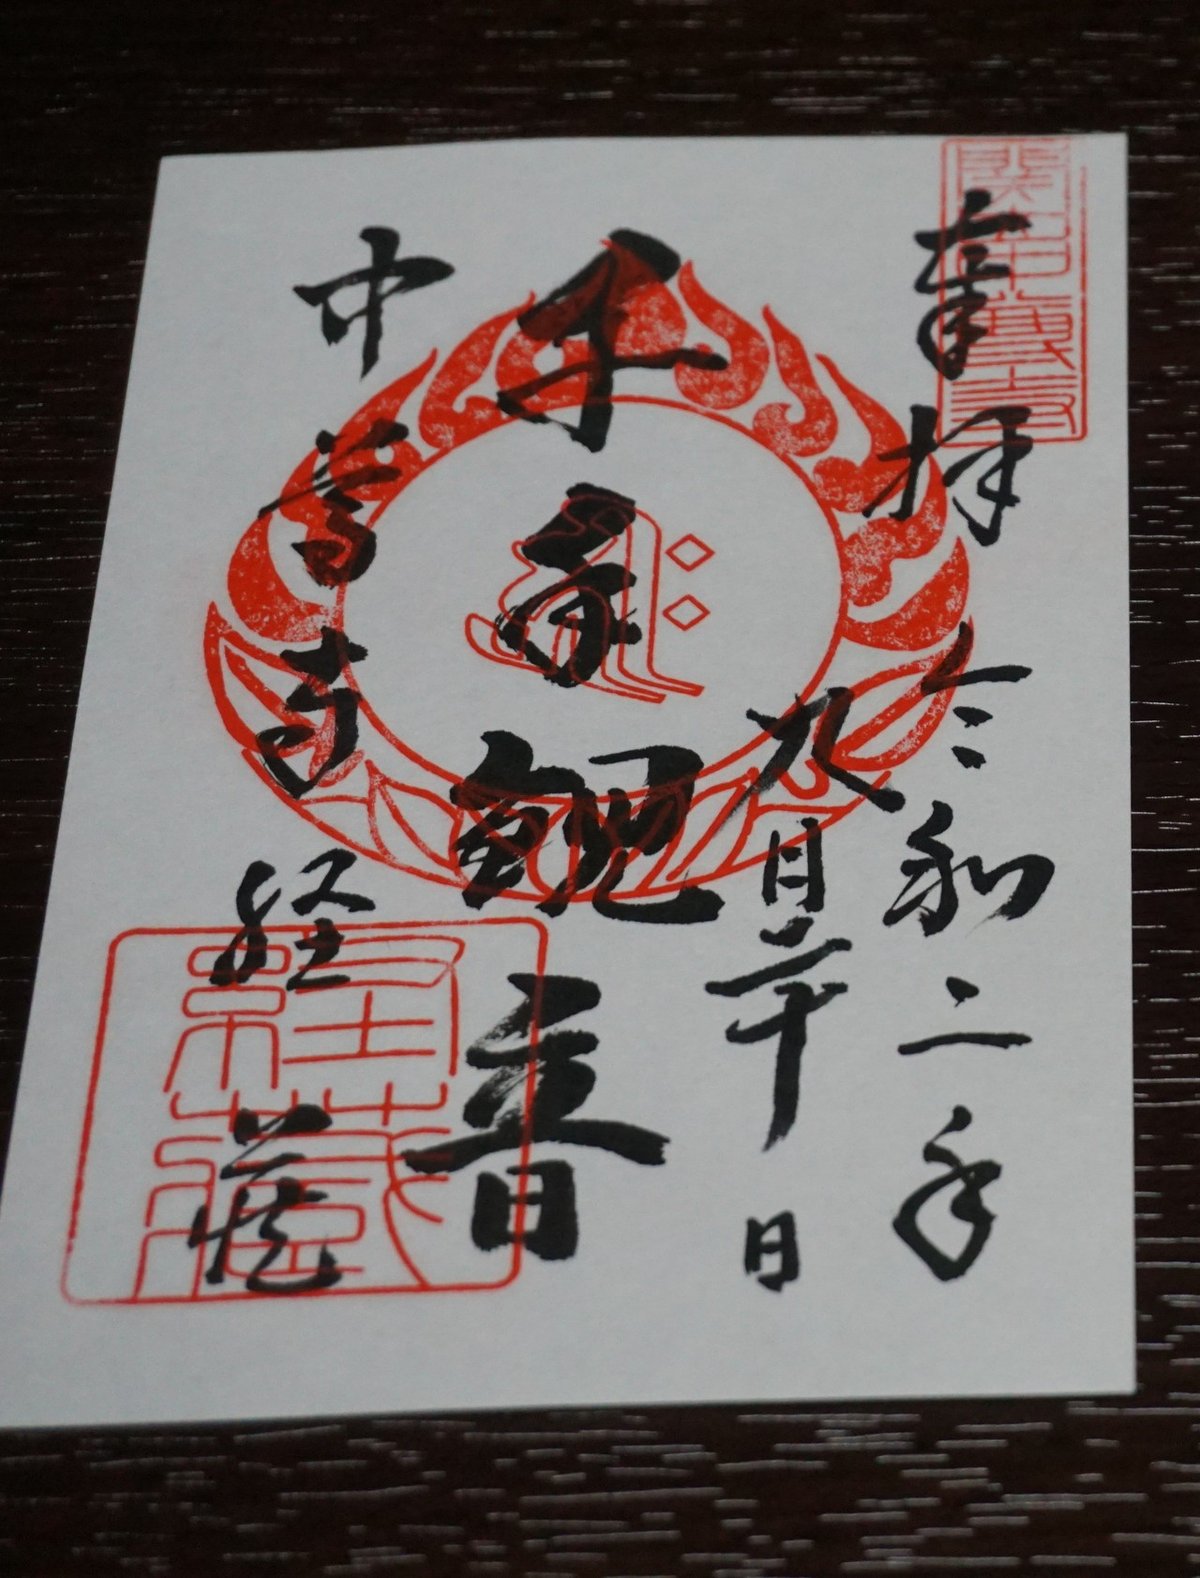 關山中尊寺
奉拝
令和二年
九月二十日
千手観音
中尊寺
経蔵
經藏